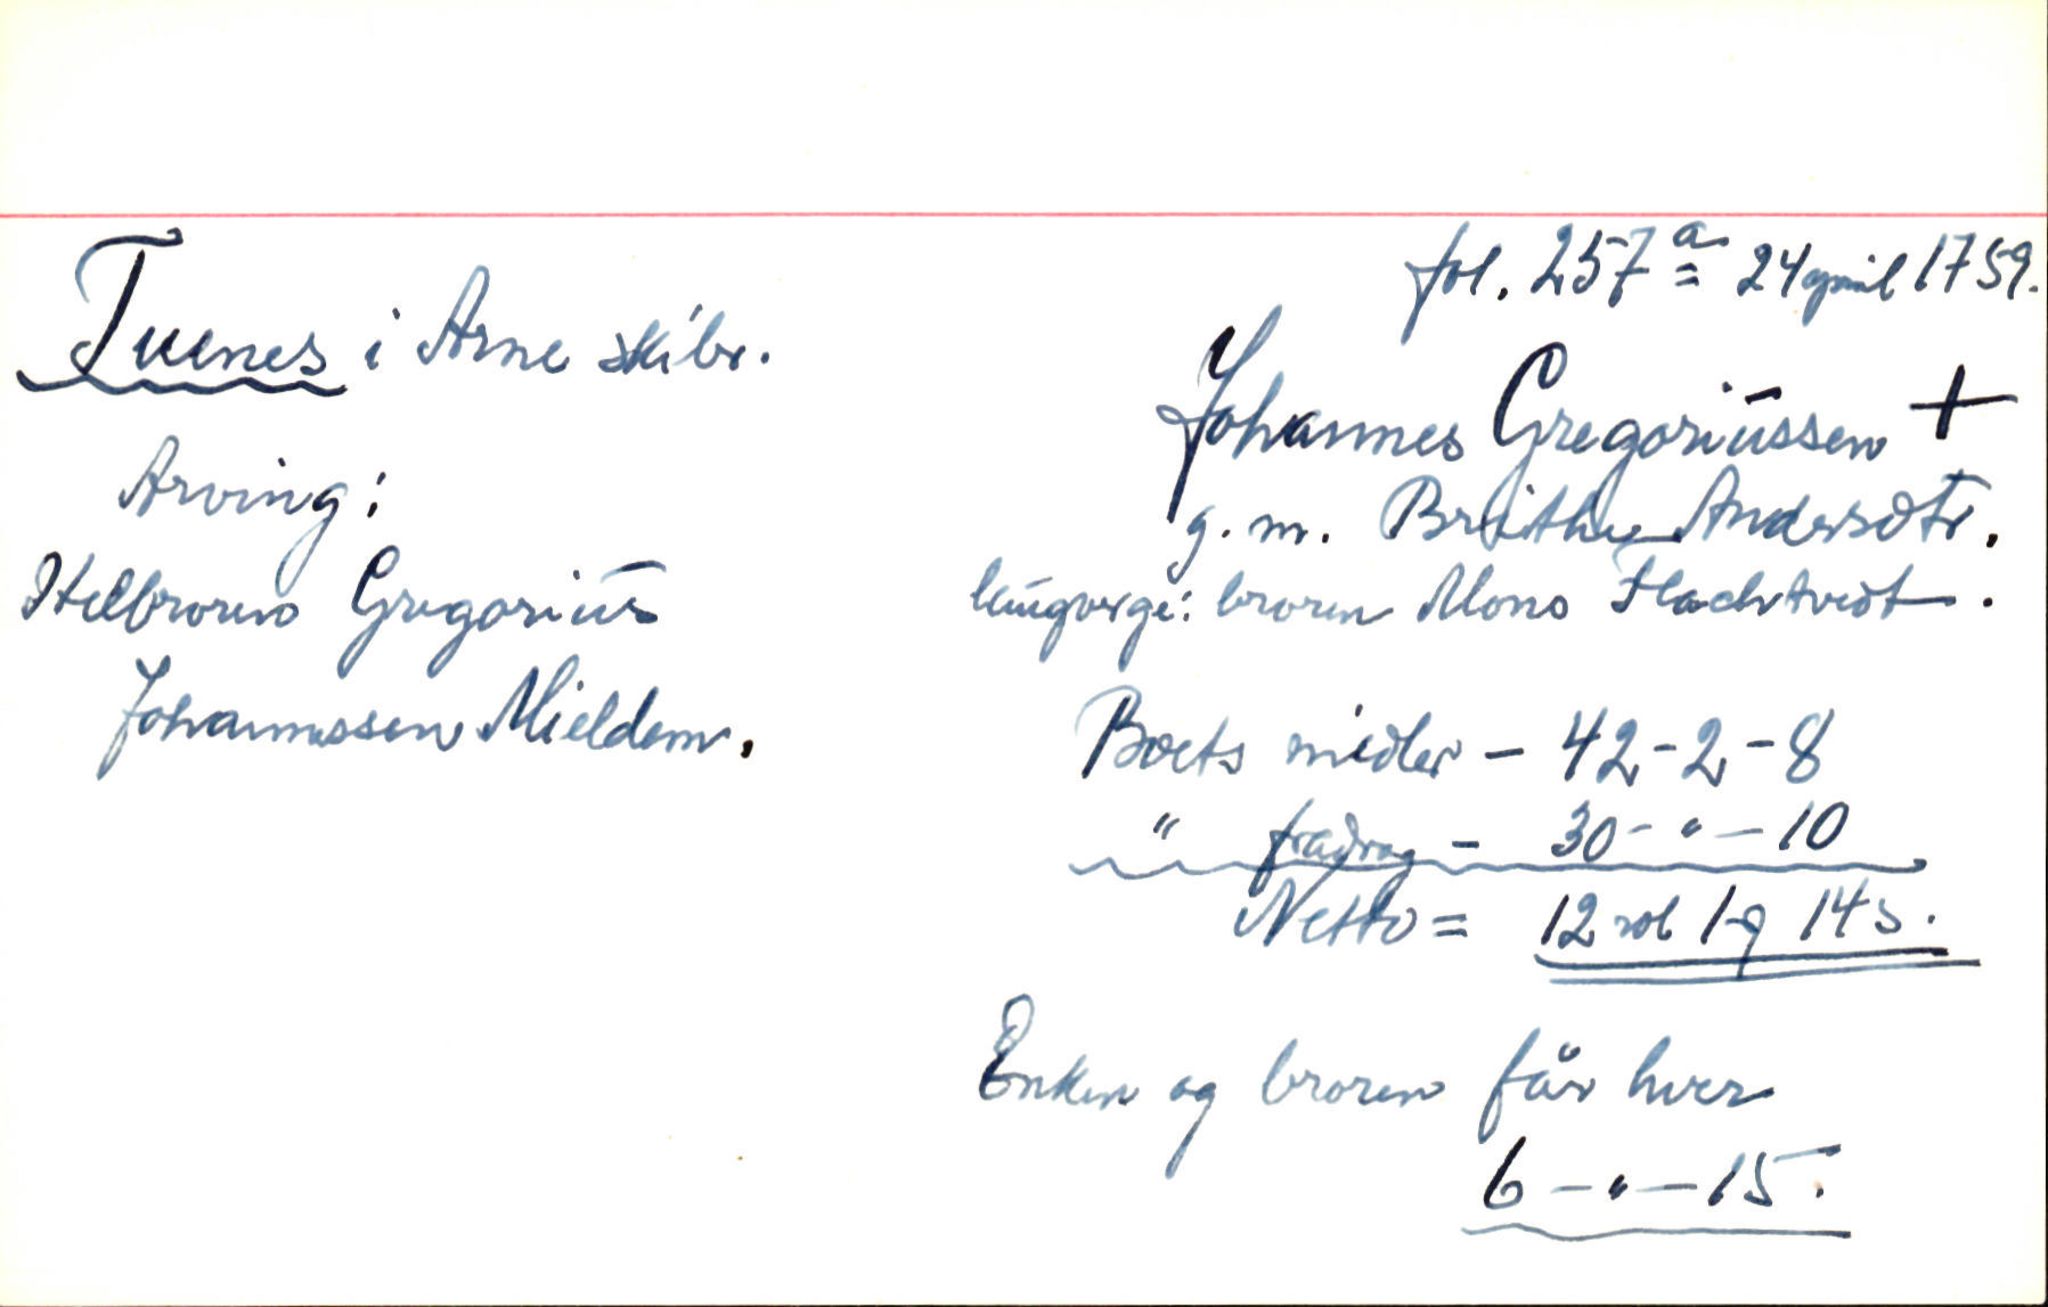 fol. 257 a = 24 april 1759.
Tuenes i Arne skibr.
Johannes Gregoriussen +
g. m. Brithe Andersdtr.
laugverge: broren Mons Flachtvedt.
Arving:
Helbroren Gregorius
Johannessen Mieldem.
Boets midler - 42-2-8
" fradrag - 30-"-10
Netto = 12 rdl 1 q 14 s.
Enken og broren får hver
6-"-15.